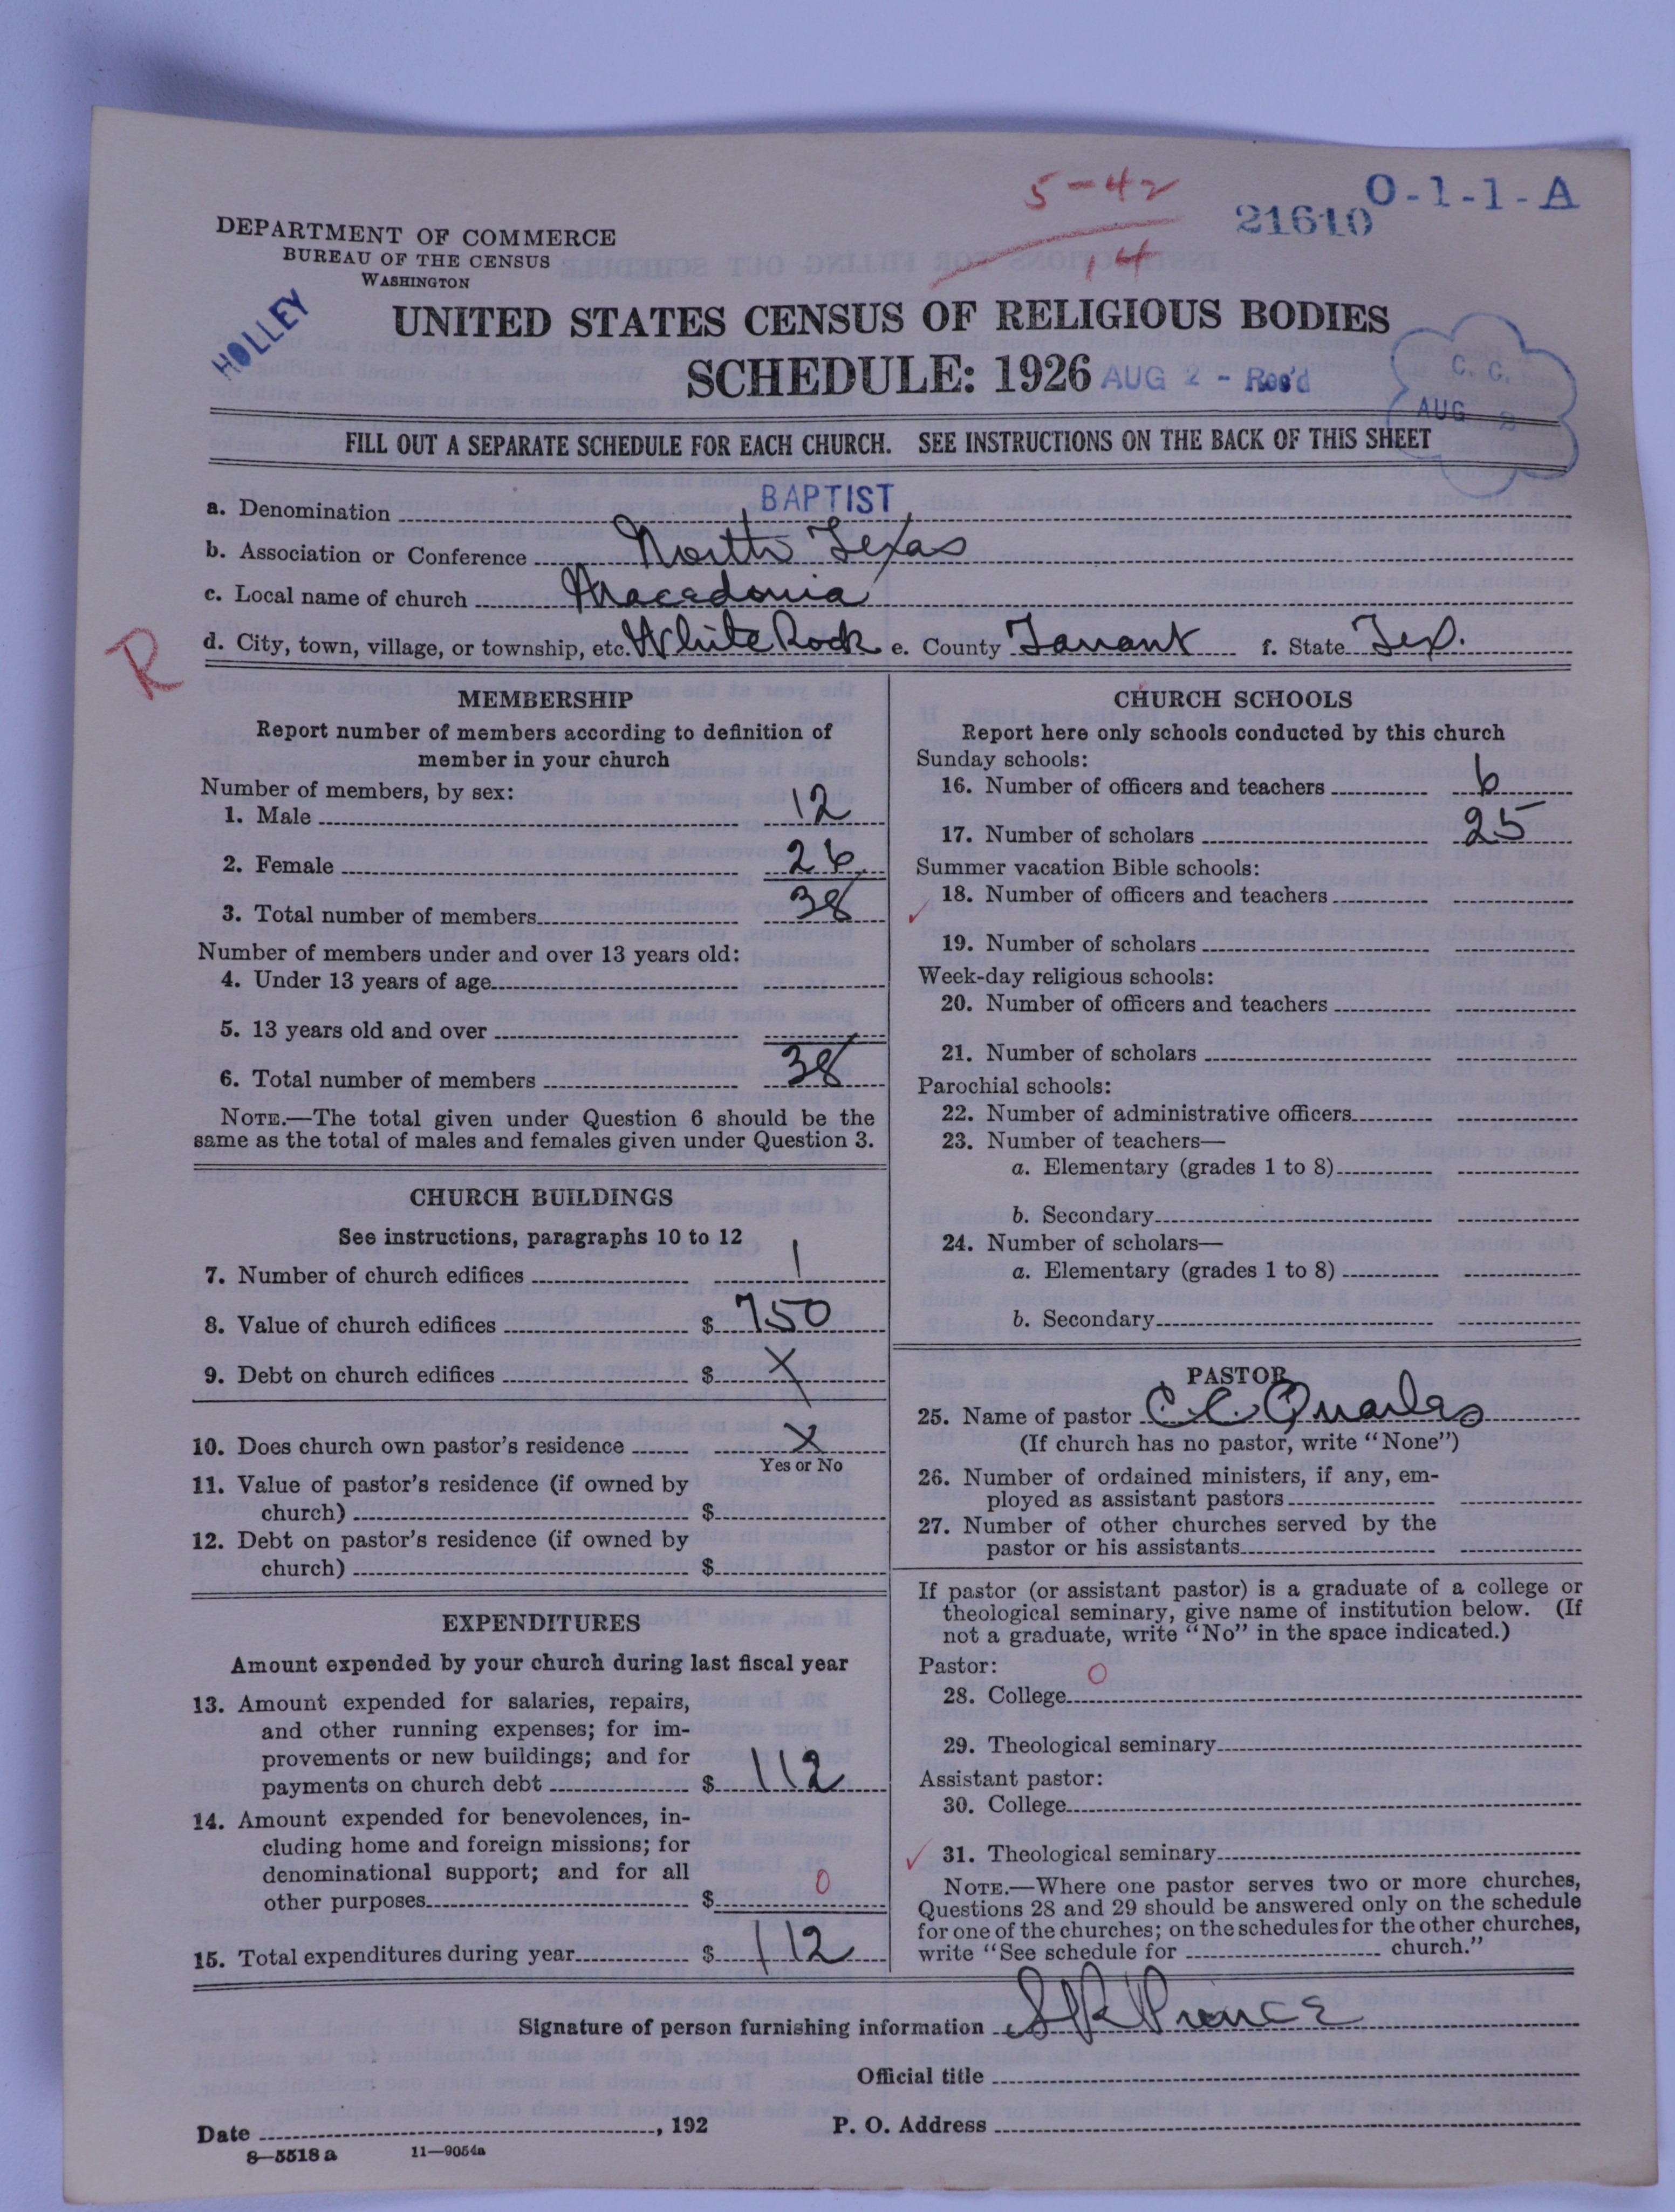 5-42
14
21610
O-1-1-A
DEPARTMENT OF COMMERCE
BUREAU OF THE CENSUS
WASHINGTON
HOLLEY
UNITED STATES CENSUS OF RELIGIOUS BODIES
SCHEDULE: 1926
AUG 2 - Rec'd
C. C.
AUG
FILL OUT A SEPARATE SCHEDULE FOR EACH CHURCH. SEE INSTRUCTIONS ON THE BACK OF THIS SHEET
a. Denomination BAPTIST
b. Association or Conference North Texas
c. Local name of church Macadonia
d. City, town, village, or township, etc. White Rock e. County Tarrant f. State Tex.
R
MEMBERSHIP
Report number of members according to definition of
member in your church
Number of members, by sex:
1. Male 12
2. Female 26
3. Total number of members 38
Number of members under and over 13 years old:
4. Under 13 years of age
5. 13 years old and over
6. Total number of members 38
NOTE.—The total given under Question 6 should be the
same as the total of males and females given under Question 3.
CHURCH BUILDINGS
See instructions, paragraphs 10 to 12
7. Number of church edifices 1
8. Value of church edifices $ 750
9. Debt on church edifices $ X
10. Does church own pastor's residence X
Yes or No
11. Value of pastor's residence (if owned by
church) $
12. Debt on pastor's residence (if owned by
church) $
EXPENDITURES
Amount expended by your church during last fiscal year
13. Amount expended for salaries, repairs,
and other running expenses; for im-
provements or new buildings; and for
payments on church debt $ 112
14. Amount expended for benevolences, in-
cluding home and foreign missions; for
denominational support; and for all
other purposes $ 0
15. Total expenditures during year $ 112
CHURCH SCHOOLS
Report here only schools conducted by this church
Sunday schools:
16. Number of officers and teachers 6
17. Number of scholars 25
Summer vacation Bible schools:
18. Number of officers and teachers
19. Number of scholars
Week-day religious schools:
20. Number of officers and teachers
21. Number of scholars
Parochial schools:
22. Number of administrative officers
23. Number of teachers—
a. Elementary (grades 1 to 8)
b. Secondary
24. Number of scholars—
a. Elementary (grades 1 to 8)
b. Secondary
PASTOR
25. Name of pastor C C Quarles
(If church has no pastor, write "None")
26. Number of ordained ministers, if any, em-
ployed as assistant pastors
27. Number of other churches served by the
pastor or his assistants
If pastor (or assistant pastor) is a graduate of a college or
theological seminary, give name of institution below. (If
not a graduate, write "No" in the space indicated.)
Pastor:
28. College 0
29. Theological seminary
Assistant pastor:
30. College
31. Theological seminary
NOTE.—Where one pastor serves two or more churches,
Questions 28 and 29 should be answered only on the schedule
for one of the churches; on the schedules for the other churches,
write "See schedule for church."
Signature of person furnishing information S R Prince
Official title
Date , 192 P. O. Address
8—5518 a 11—9054a